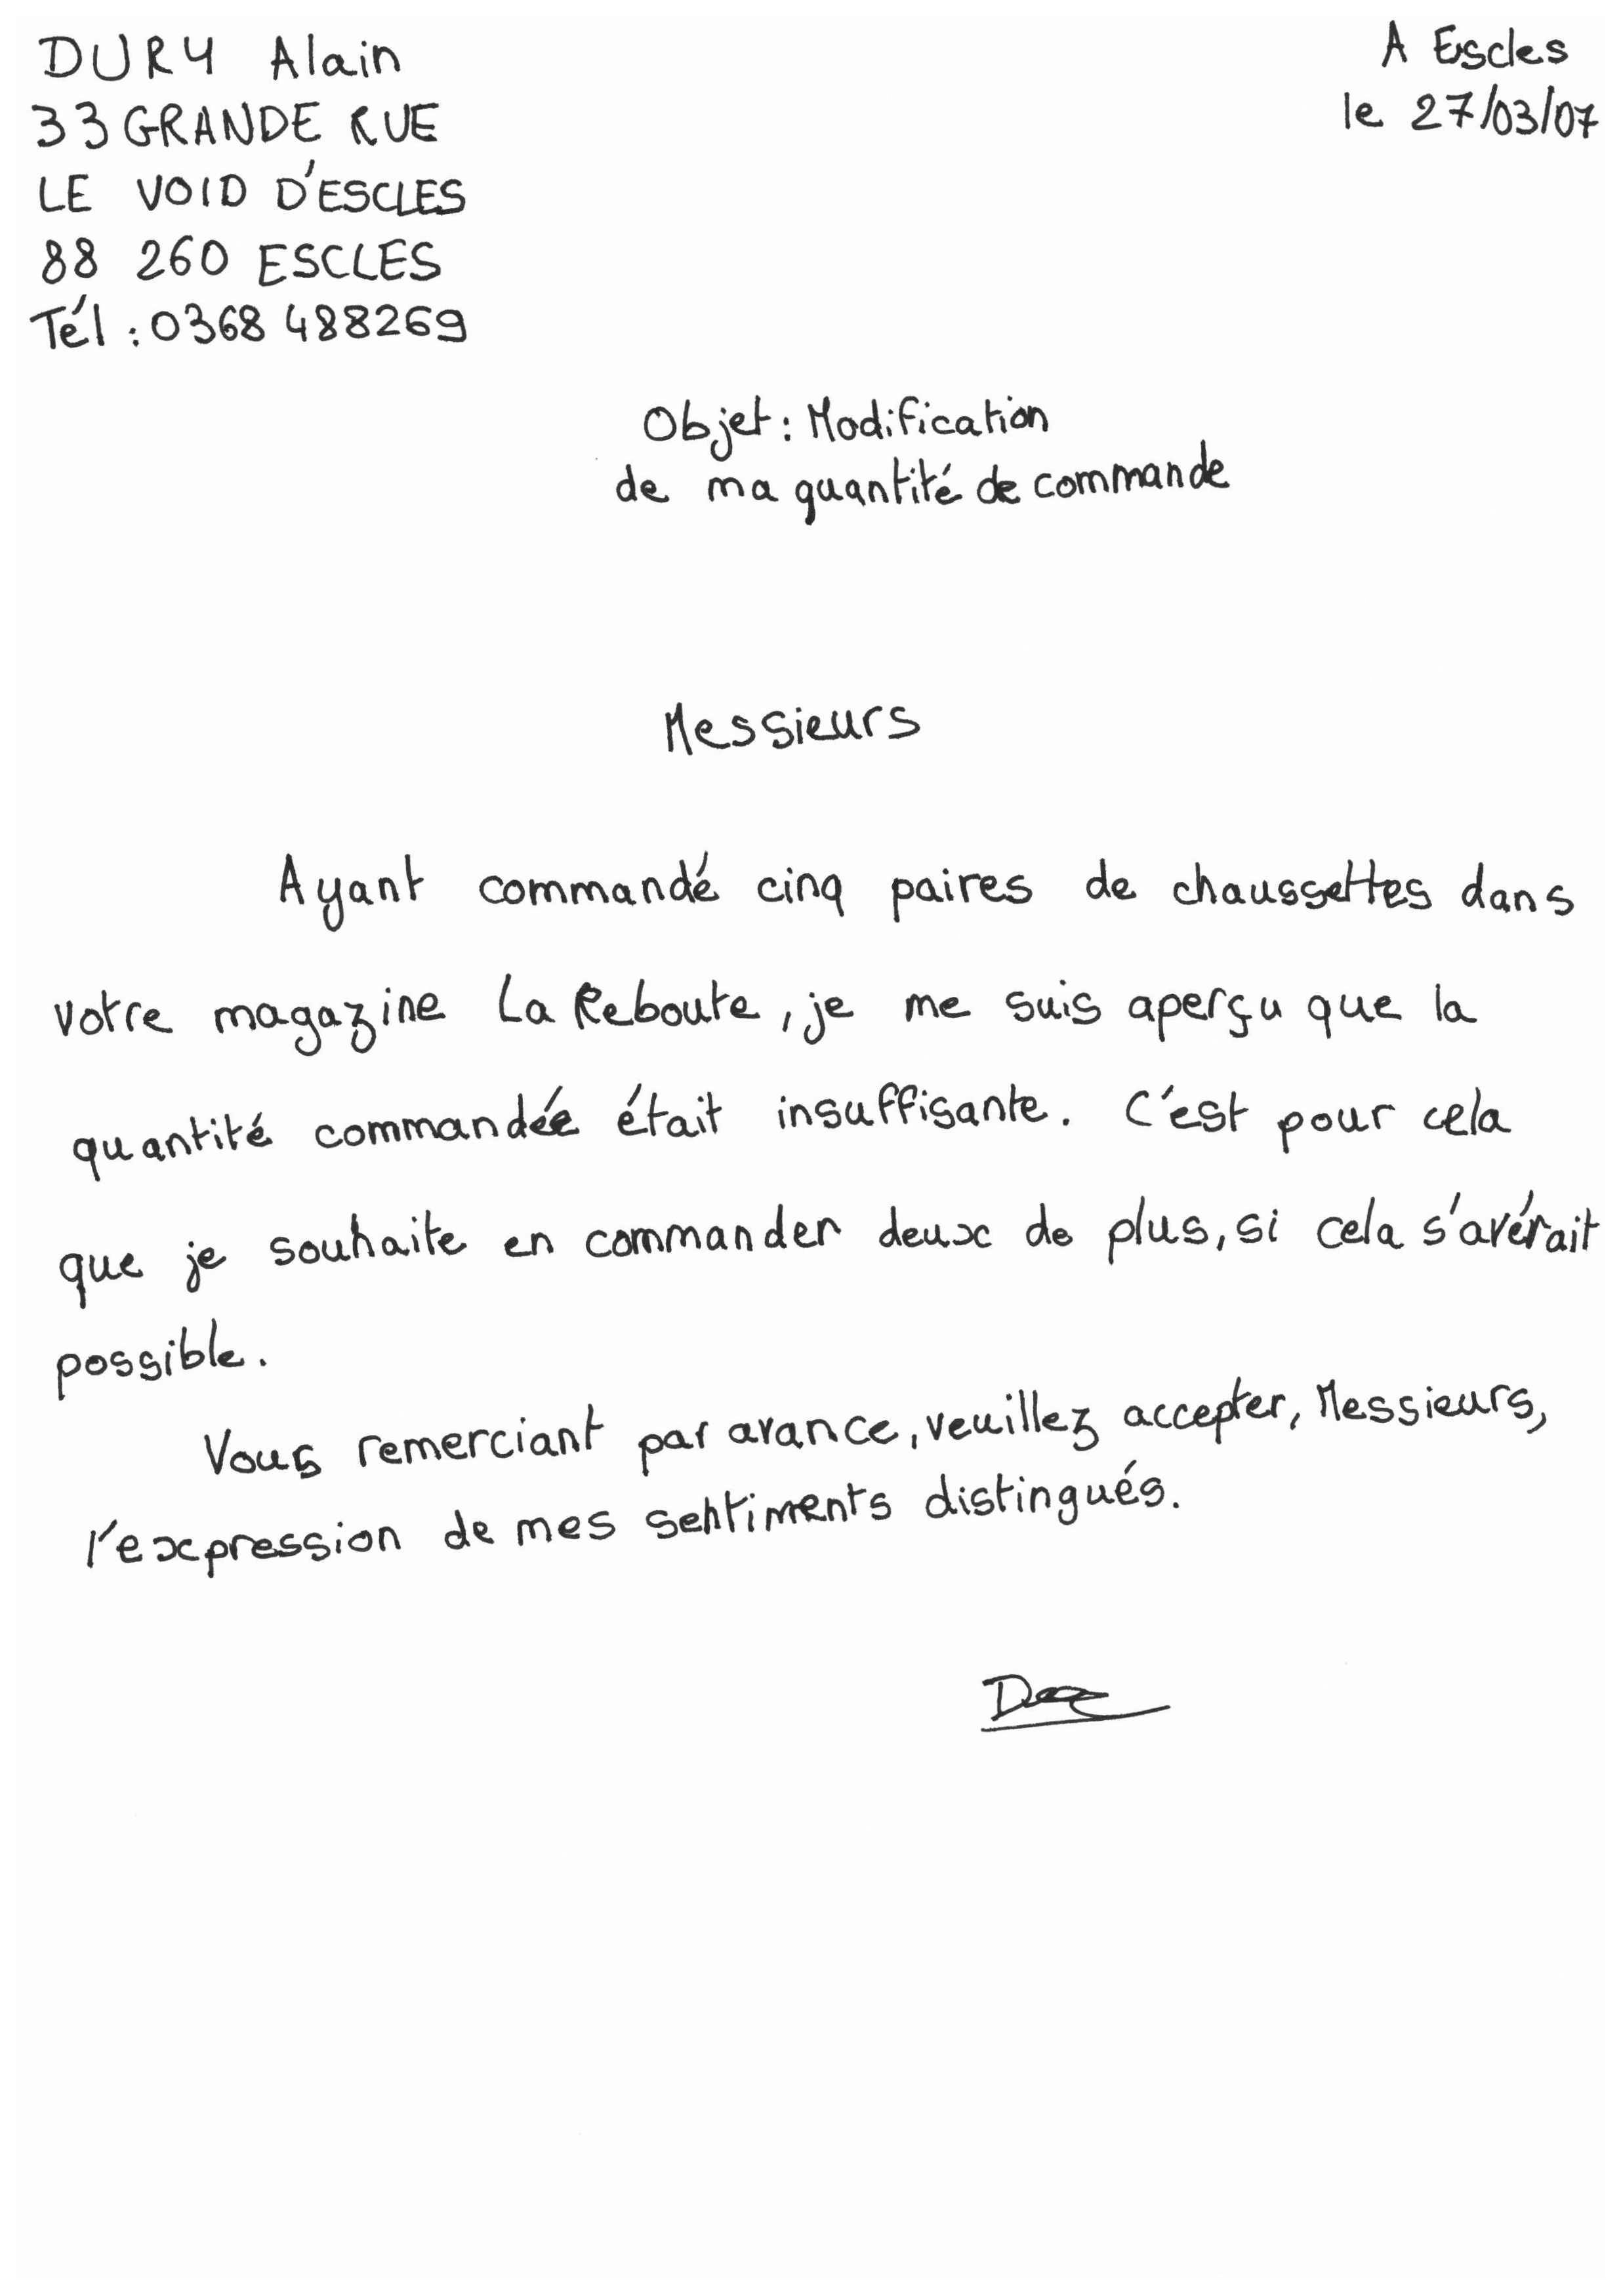 DURY Alain
A Escles
33 GRANDE RUE
le 27/03/07
LE VOID D'ESCLES
88 260 ESCLES
Tél : 0368 488269
Objet : Modification
de ma quantité de commande
Messieurs
Ayant commandé cinq paires de chaussettes dans
votre magazine La Reboute, je me suis aperçu que la
quantité commandée était insuffisante. C'est pour cela
que je souhaite en commander deux de plus, si cela s'avérait
possible.
Vous remerciant par avance, veuillez accepter, Messieurs,
l'expression de mes sentiments distingués.